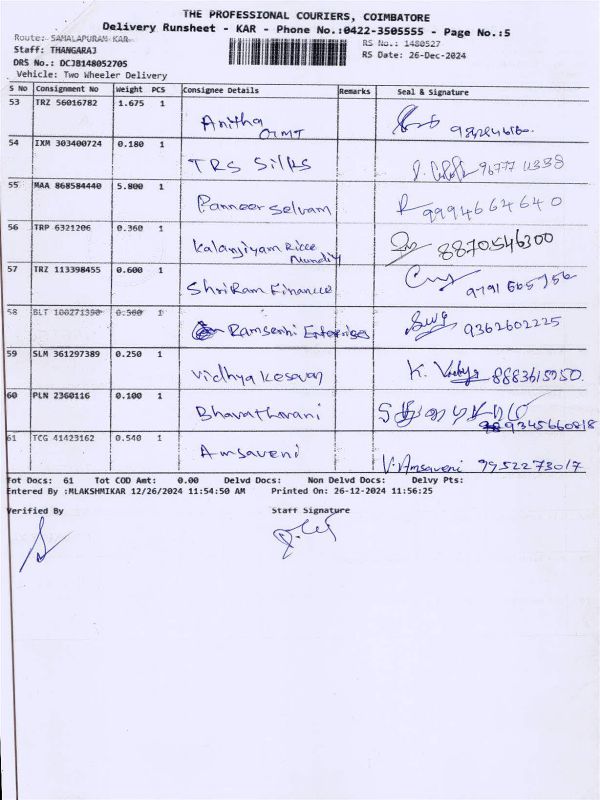 THE PROFESSIONAL COURIERS, COIMBATORE
Delivery Runsheet - KAR - Phone No.:0422-3505555 - Page No.:5
Route: SAMALAPURAM KAR
RS No.: 1480527
Staff: THANGARAJ
RS Date: 26-Dec-2024
DRS No.: DCJB148052705
Vehicle: Two Wheeler Delivery
S No Consignment No Weight PCS Consignee Details Remarks Seal & Signature
53 TRZ 56016782 1.675 1 Anitha
54 IXM 303400724 0.180 1 TRS Silks
55 MAA 868584440 5.800 1 Panneer Selvam 9994664640
56 TRP 6321206 0.360 1 Kalanjiyam Ricce Mundiy 8870546300
57 TRZ 113398455 0.600 1 ShriRam Finance
58 BLT 100271390 0.500 1 Enterprises 9362602225
59 SLM 361297389 0.250 1 Vidhya Kesavan K.
60 PLN 2360116 0.100 1 Bharatharani 9345660818
61 TCG 41423162 0.540 1 Amsaveni V. Amsaveni 9952273017
Tot Docs: 61 Tot COD Amt: 0.00 Delvd Docs: Non Delvd Docs: Delvy Pts:
Entered By :MLAKSHMIKAR 12/26/2024 11:54:50 AM Printed On: 26-12-2024 11:56:25
Verified By Staff Signature